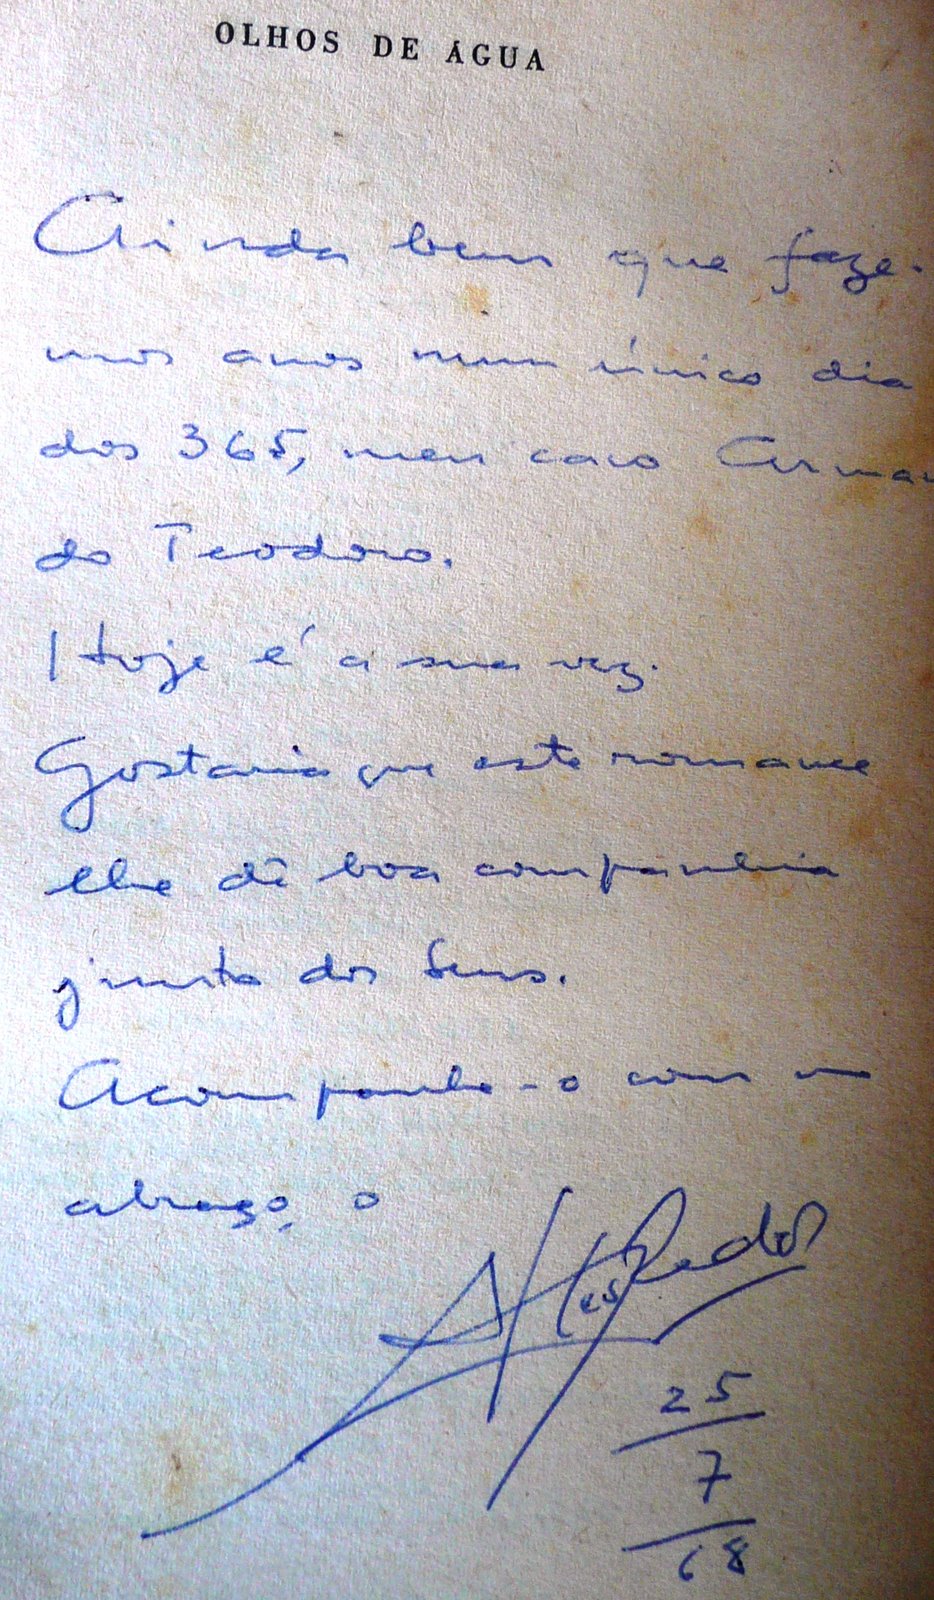 OLHOS DE ÁGUA
Ainda bem que faze-
mos anos num único dia
dos 365, meu caro Arman
do Teodoro.
Hoje é a sua vez.
Gostaria que este romance
lhe dê boa companhia
junto dos Seus.
Acompanho-o com um
abraço, o
25
7
68